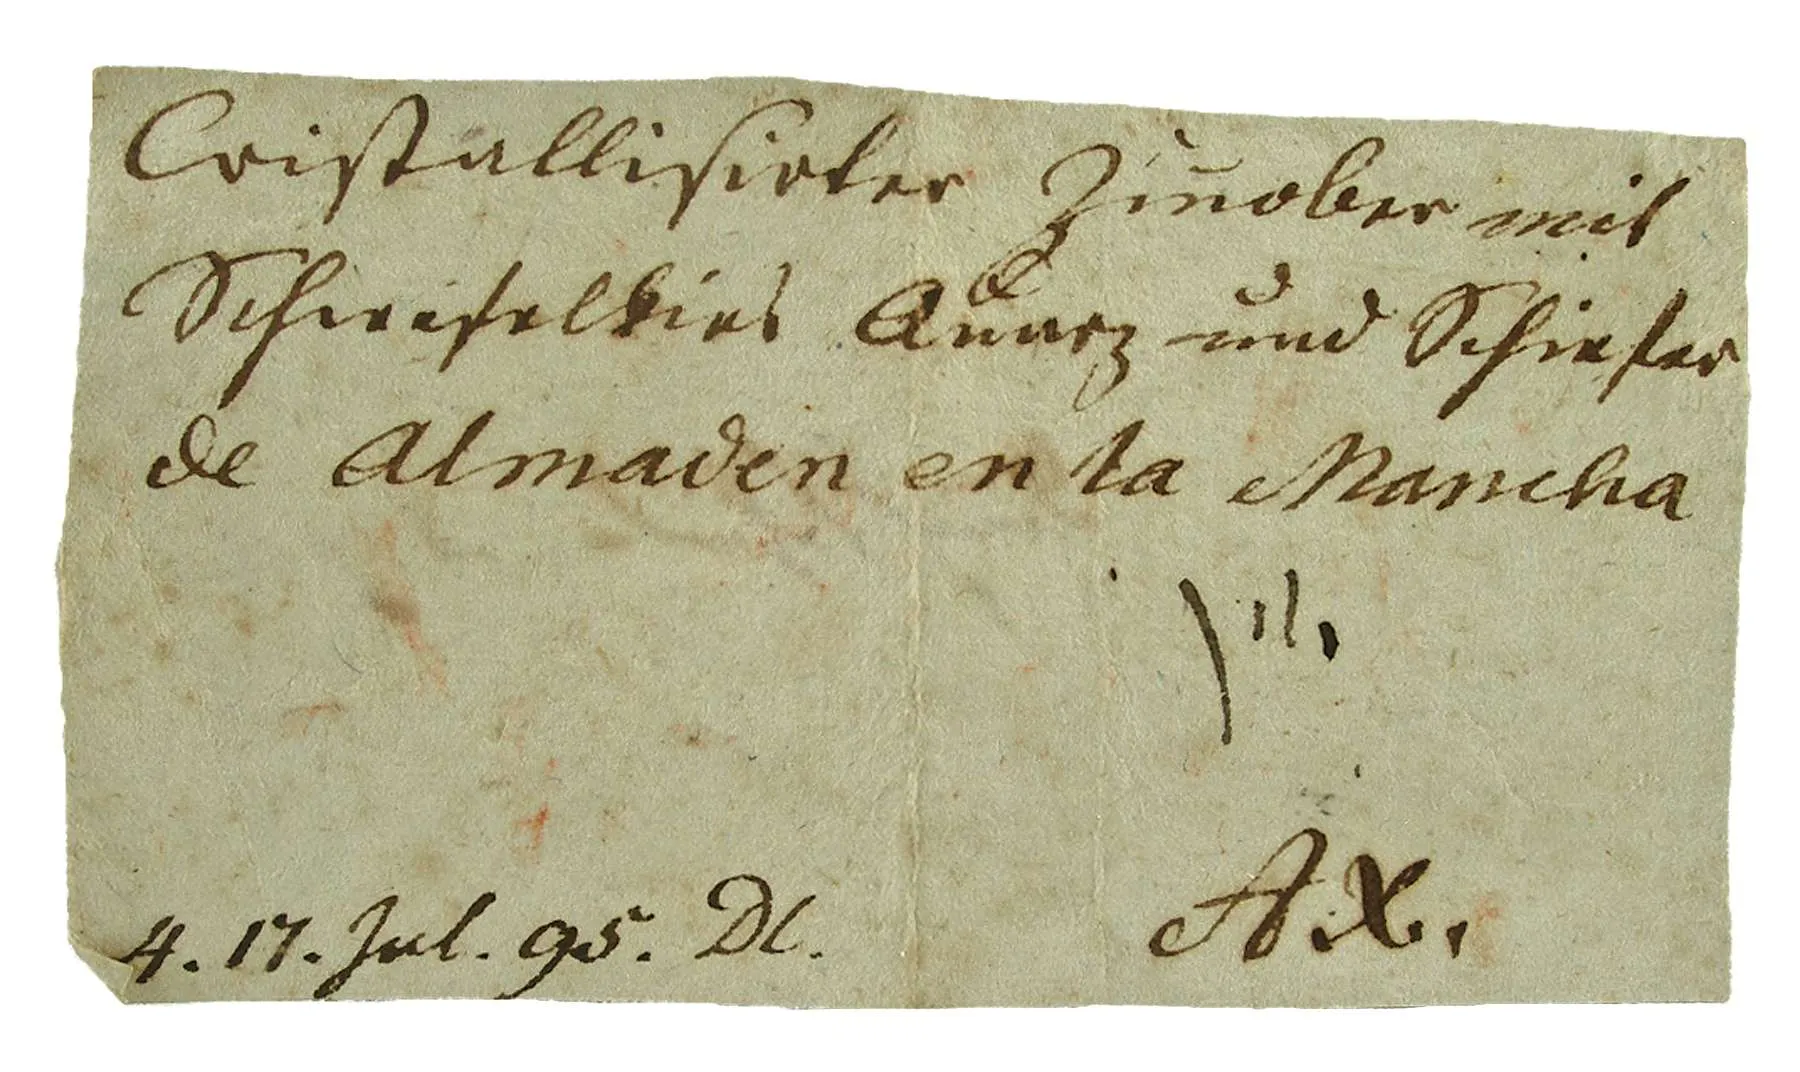 Cristallisirter Zinnober mit
Schwefelkies Quarz und Schiefer
de Almaden en la Mancha
4. 17. Jul. 95. Dl.
A.X.